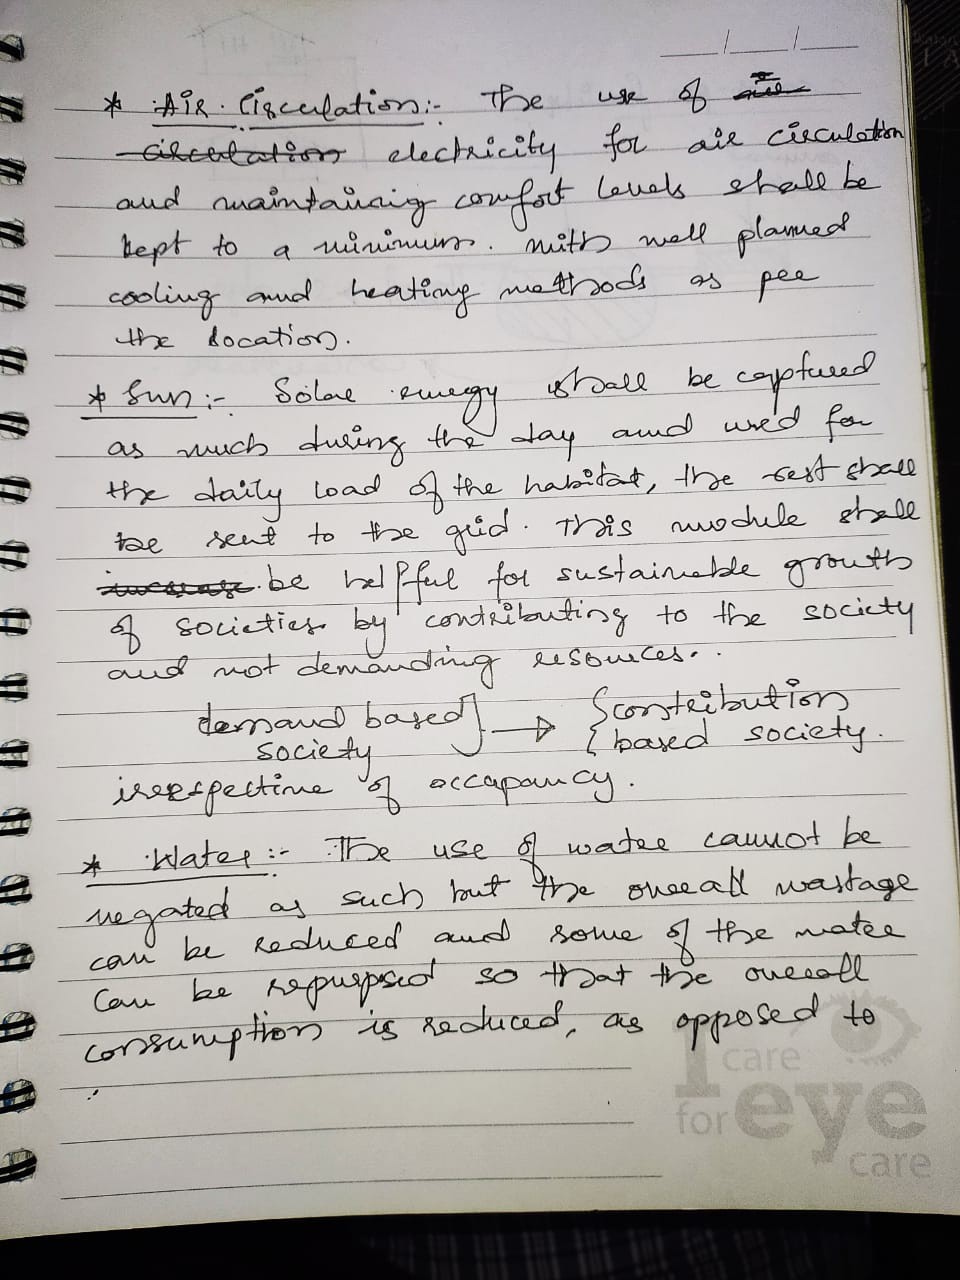 __/__/__
* Air Circulation:- The use of air
circulation electricity for air circulation
and maintaining comfort levels shall be
kept to a minimum. with well planned
cooling and heating methods as per
the location.
* Sun:- Solar energy shall be captured
as much during the day and used for
the daily load of the habitat, the rest shall
be sent to the grid. This module shall
increase be helpful for sustainable growth
of societies by contributing to the society
and not demanding resources.
demand based society } → { contribution based society.
irrespective of occupancy.
* Water:- The use of water cannot be
negated as such but the overall wastage
can be reduced and some of the water
can be repurposed so that the overall
consumption is reduced, as opposed to
I care
for eye
care